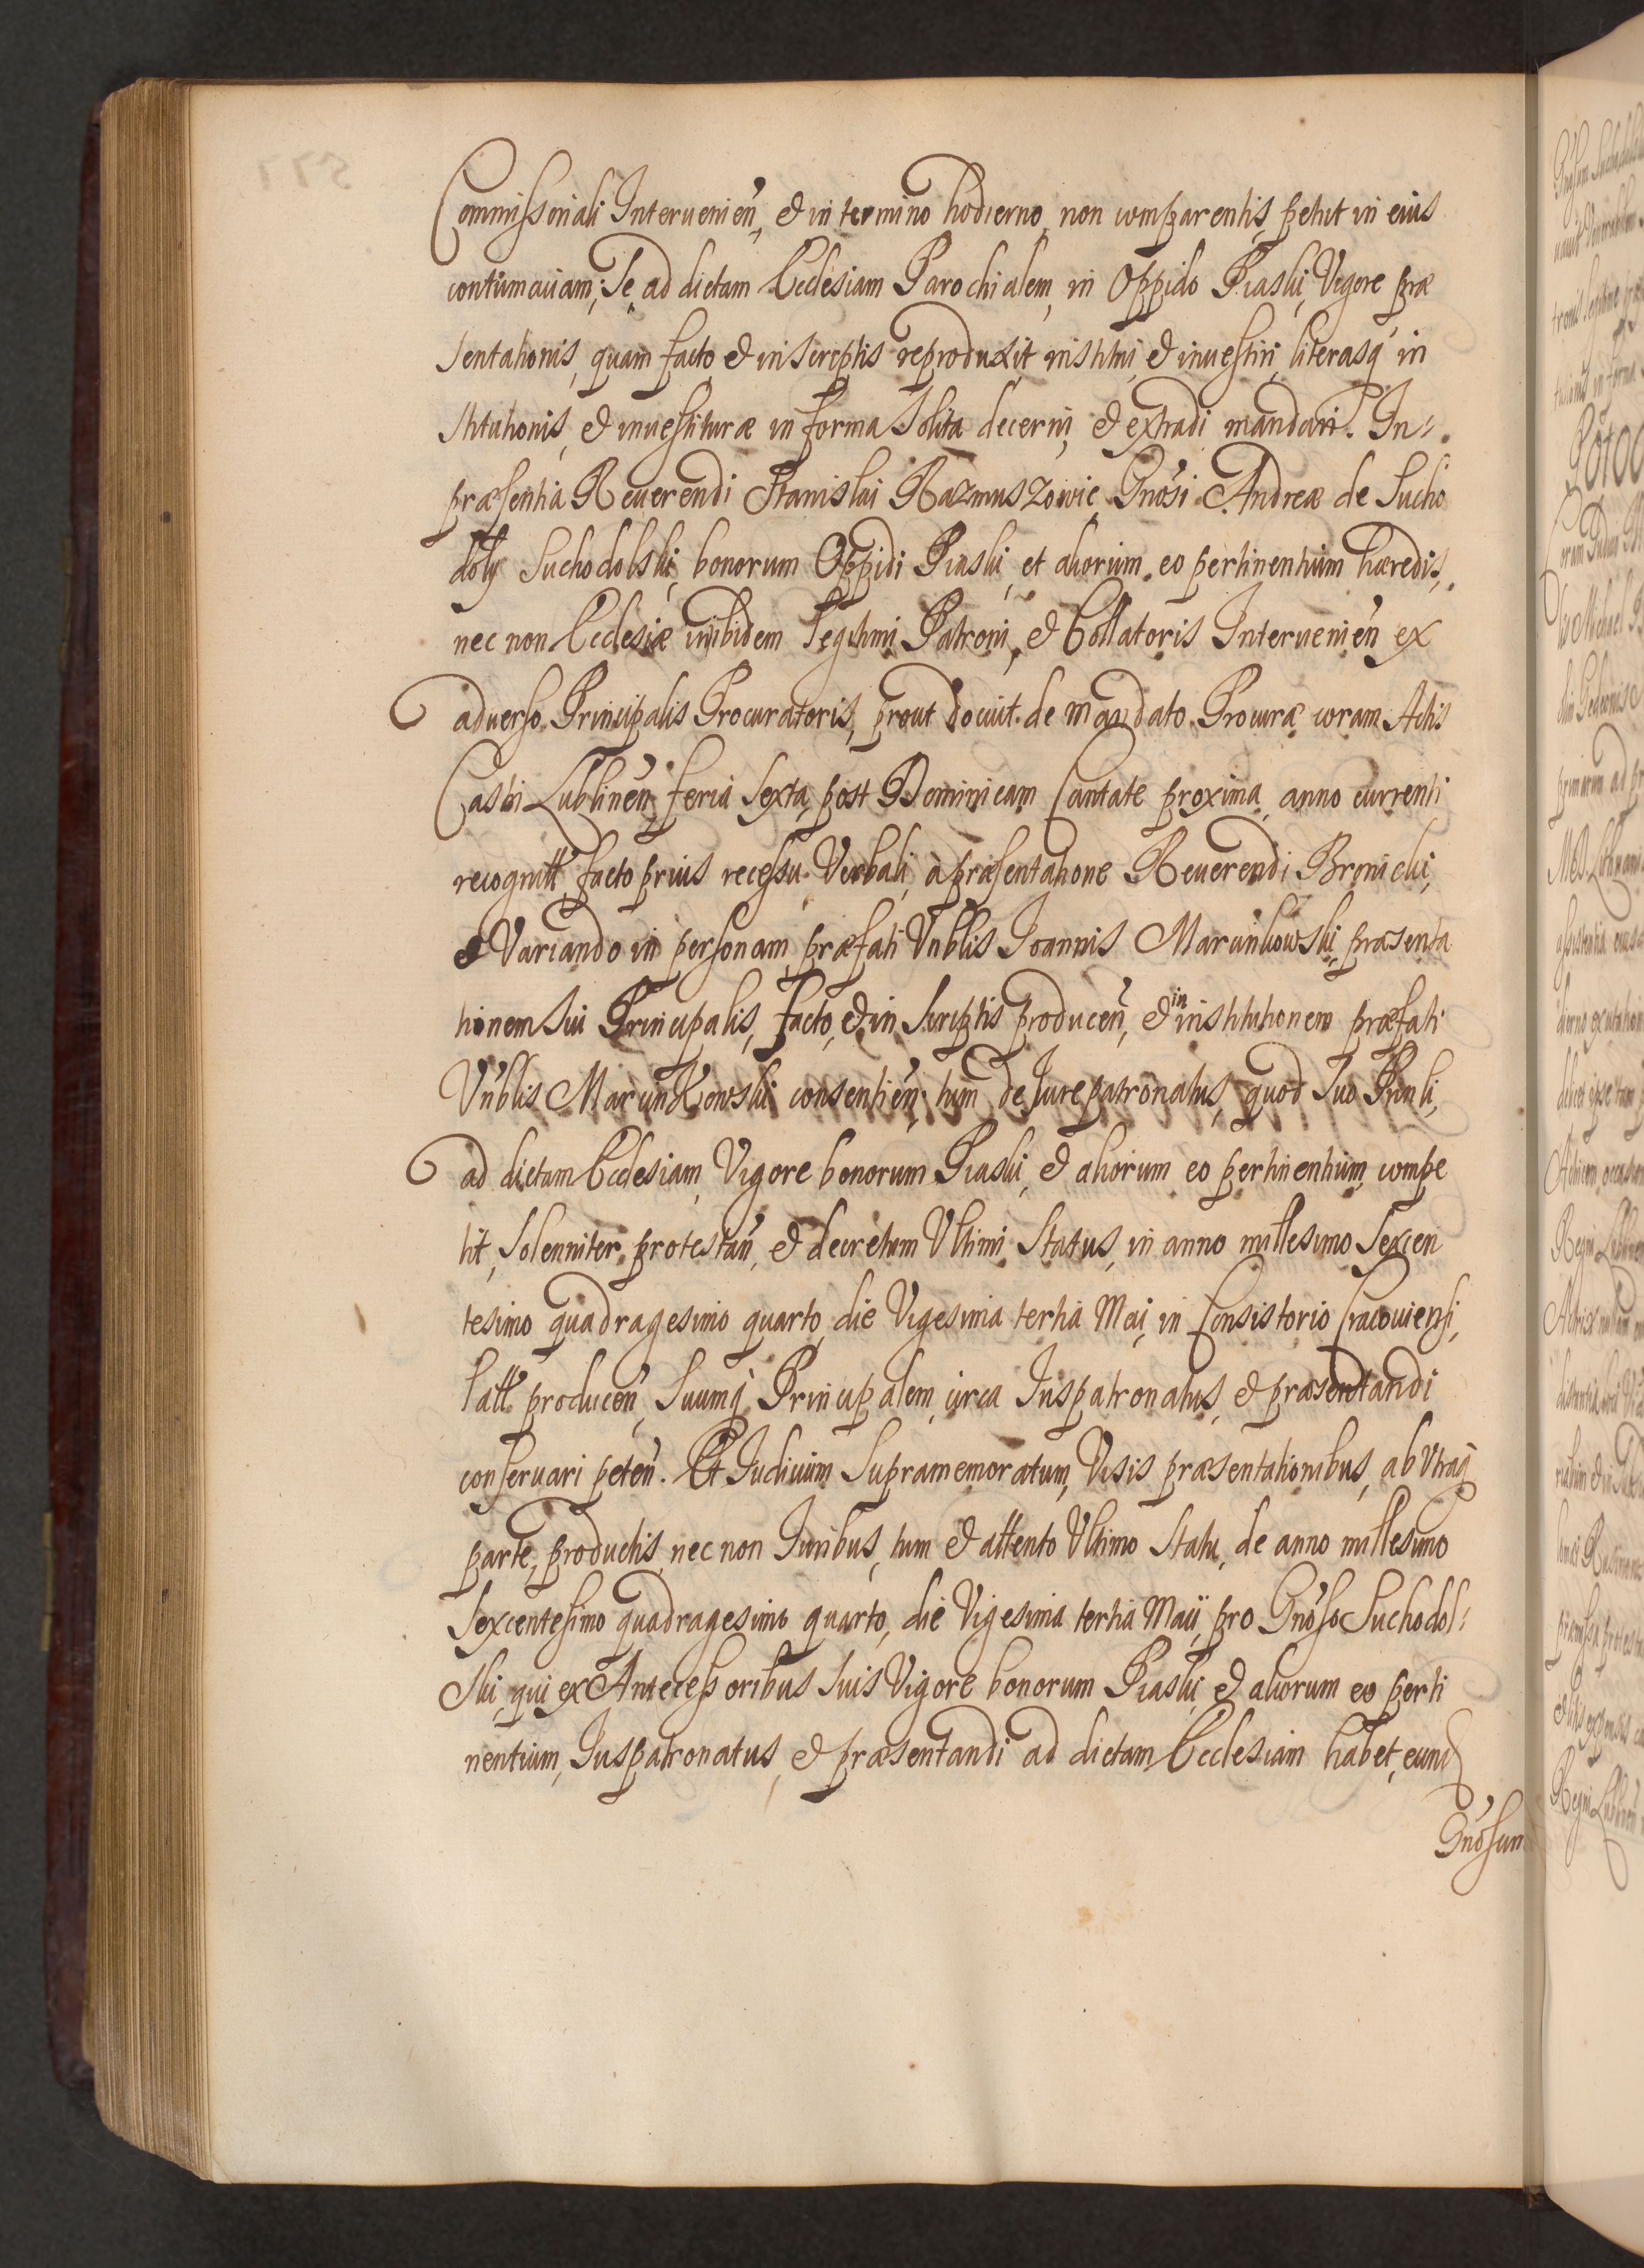 Commissoriali Intervenien̄, et in termino hodierno non comparentis, petijt in eius
contumaciam, Se ad dictam Ecclesiam Parochialem, in Oppido Piaski, Vigore præ
sentationis, quam facto et in scriptis reproduxit institui, et investiri, literasq̃ in
stitutionis, et investituræ in forma Solita decerni, et extradi mandari. In
præsentia Reverendi Stanislai Razmuszowic Gnosi Andreæ de Sucho
doly Suchodolski, bonorum Oppidi Piaski, et aliorum eo pertinentium hæredis,
nec non Ecclesiæ inibidem Legitimi Patroni, et Collatoris Intervenien̄ ex
adverso Principalis Procuratoris, prout docuit de mandato Procuræ coram Actis
Castri Lublinen̄, feria Sexta, post Dominicam Cantate proxima, anno currenti
recognitt, facto prius recessu Verbali, à præsentatione Reverendi Bronicki,
et Variando in personam præfati Vnblis Joannis Marcinkowski, præsenta
tionem Sui Principalis, facto, et in Scriptis producen̄, et in institutionem præfati
Vnblis Marcinkowski consentien̄, tum de Jurepatronatus, quod Suo Prinli,
ad dictam Ecclesiam, Vigore bonorum Piaski, et aliorum eo pertinentium, compe
tit, Solenniter protestan̄, et decretum Vltimi Status, in anno millesimo Sexcen
tesimo quadragesimo quarto, die Vigesima tertia Maij, in Consistorio Cracoviensi,
latt producen̄, Suumq̃ Principalem, circa Juspatronatus, et præsentandi
conservari peten̄. Et Judicium Supramemoratum, Visis præsentationibus, ab Vtraq̃
parte, productis, nec non Juribus, tum et attento Vltimo Statu, de anno millesimo
Sexcentesimo quadragesimo quarto, die Vigesima tertia Maij, pro Gnoso Suchodol-
Ski, qui ex Antecessoribus Suis Vigore bonorum Piaski, et aliorum eo perti
nentium, Juspatronatus, et præsentandi ad dictam Ecclesiam habet, eund
Gnosum